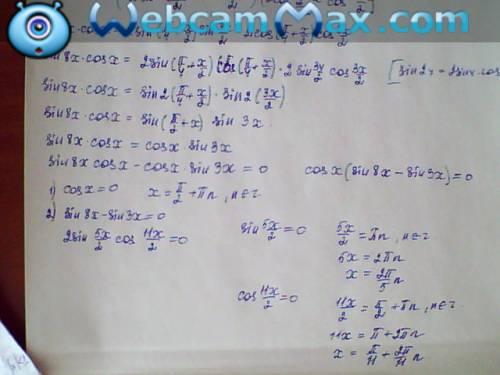 WebcamMax.com
sin8x·cosx = 2sin(π/4+x/2)cos(π/4+x/2)·2sin3x/2 cos3x/2 [sin2x=2sinx·cos
sin8x·cosx = sin2(π/4+x/2)·sin2(3x/2)
sin8x·cosx = sin(π/2+x) sin3x
sin8x·cosx = cosx·sin3x
sin8x cosx − cosx·sin3x = 0 cosx(sin8x−sin3x)=0
1) cosx=0 x=π/2+πn, n∈z
2) sin8x−sin3x=0 sin5x/2=0 5x/2=πn, n∈z
2sin5x/2 cos11x/2=0 5x=2πn
x=2π/5 n
cos11x/2=0 11x/2=π/2+πn, n∈z
11x=π+2πn
x=π/11+2π/11 n